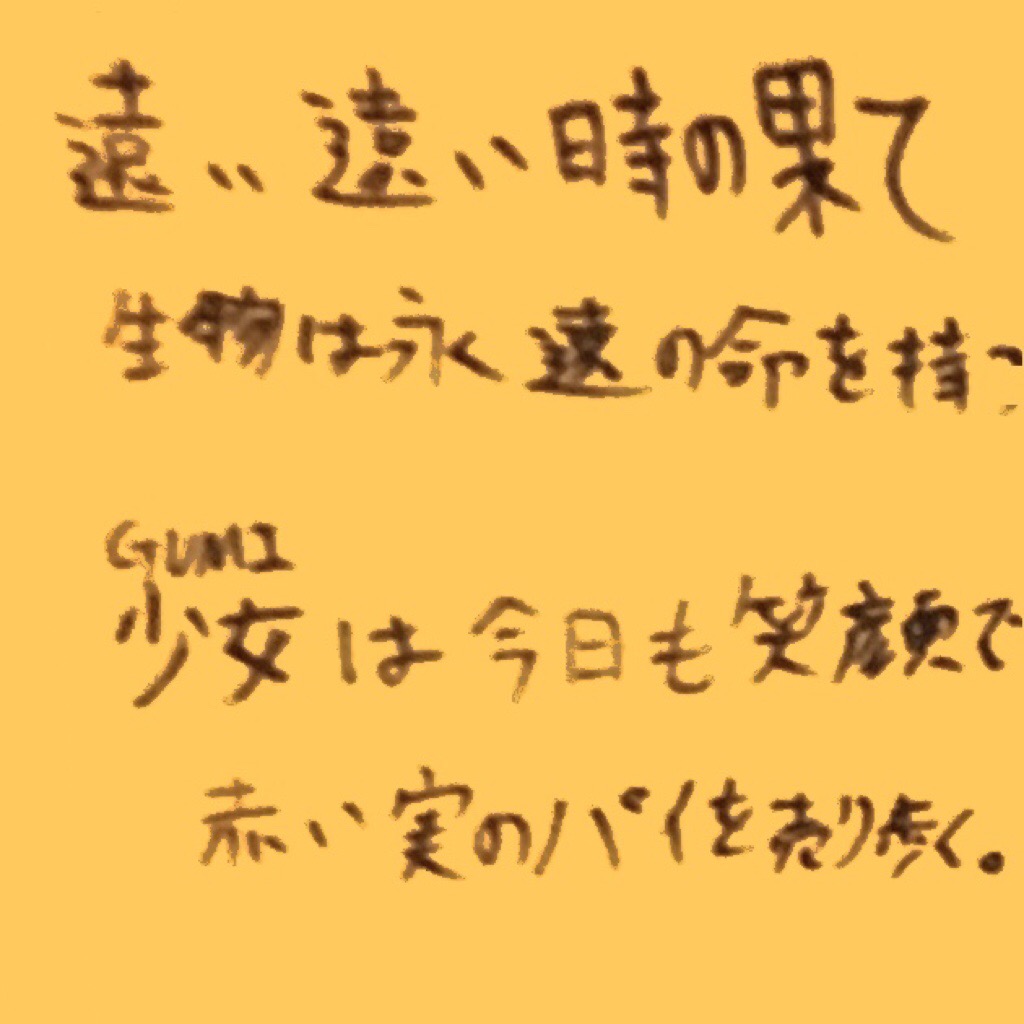 遠い遠い時の果て
生物は永遠の命を持つ
GUMI
少女は今日も笑顔で
赤い実のパイを売り歩く。